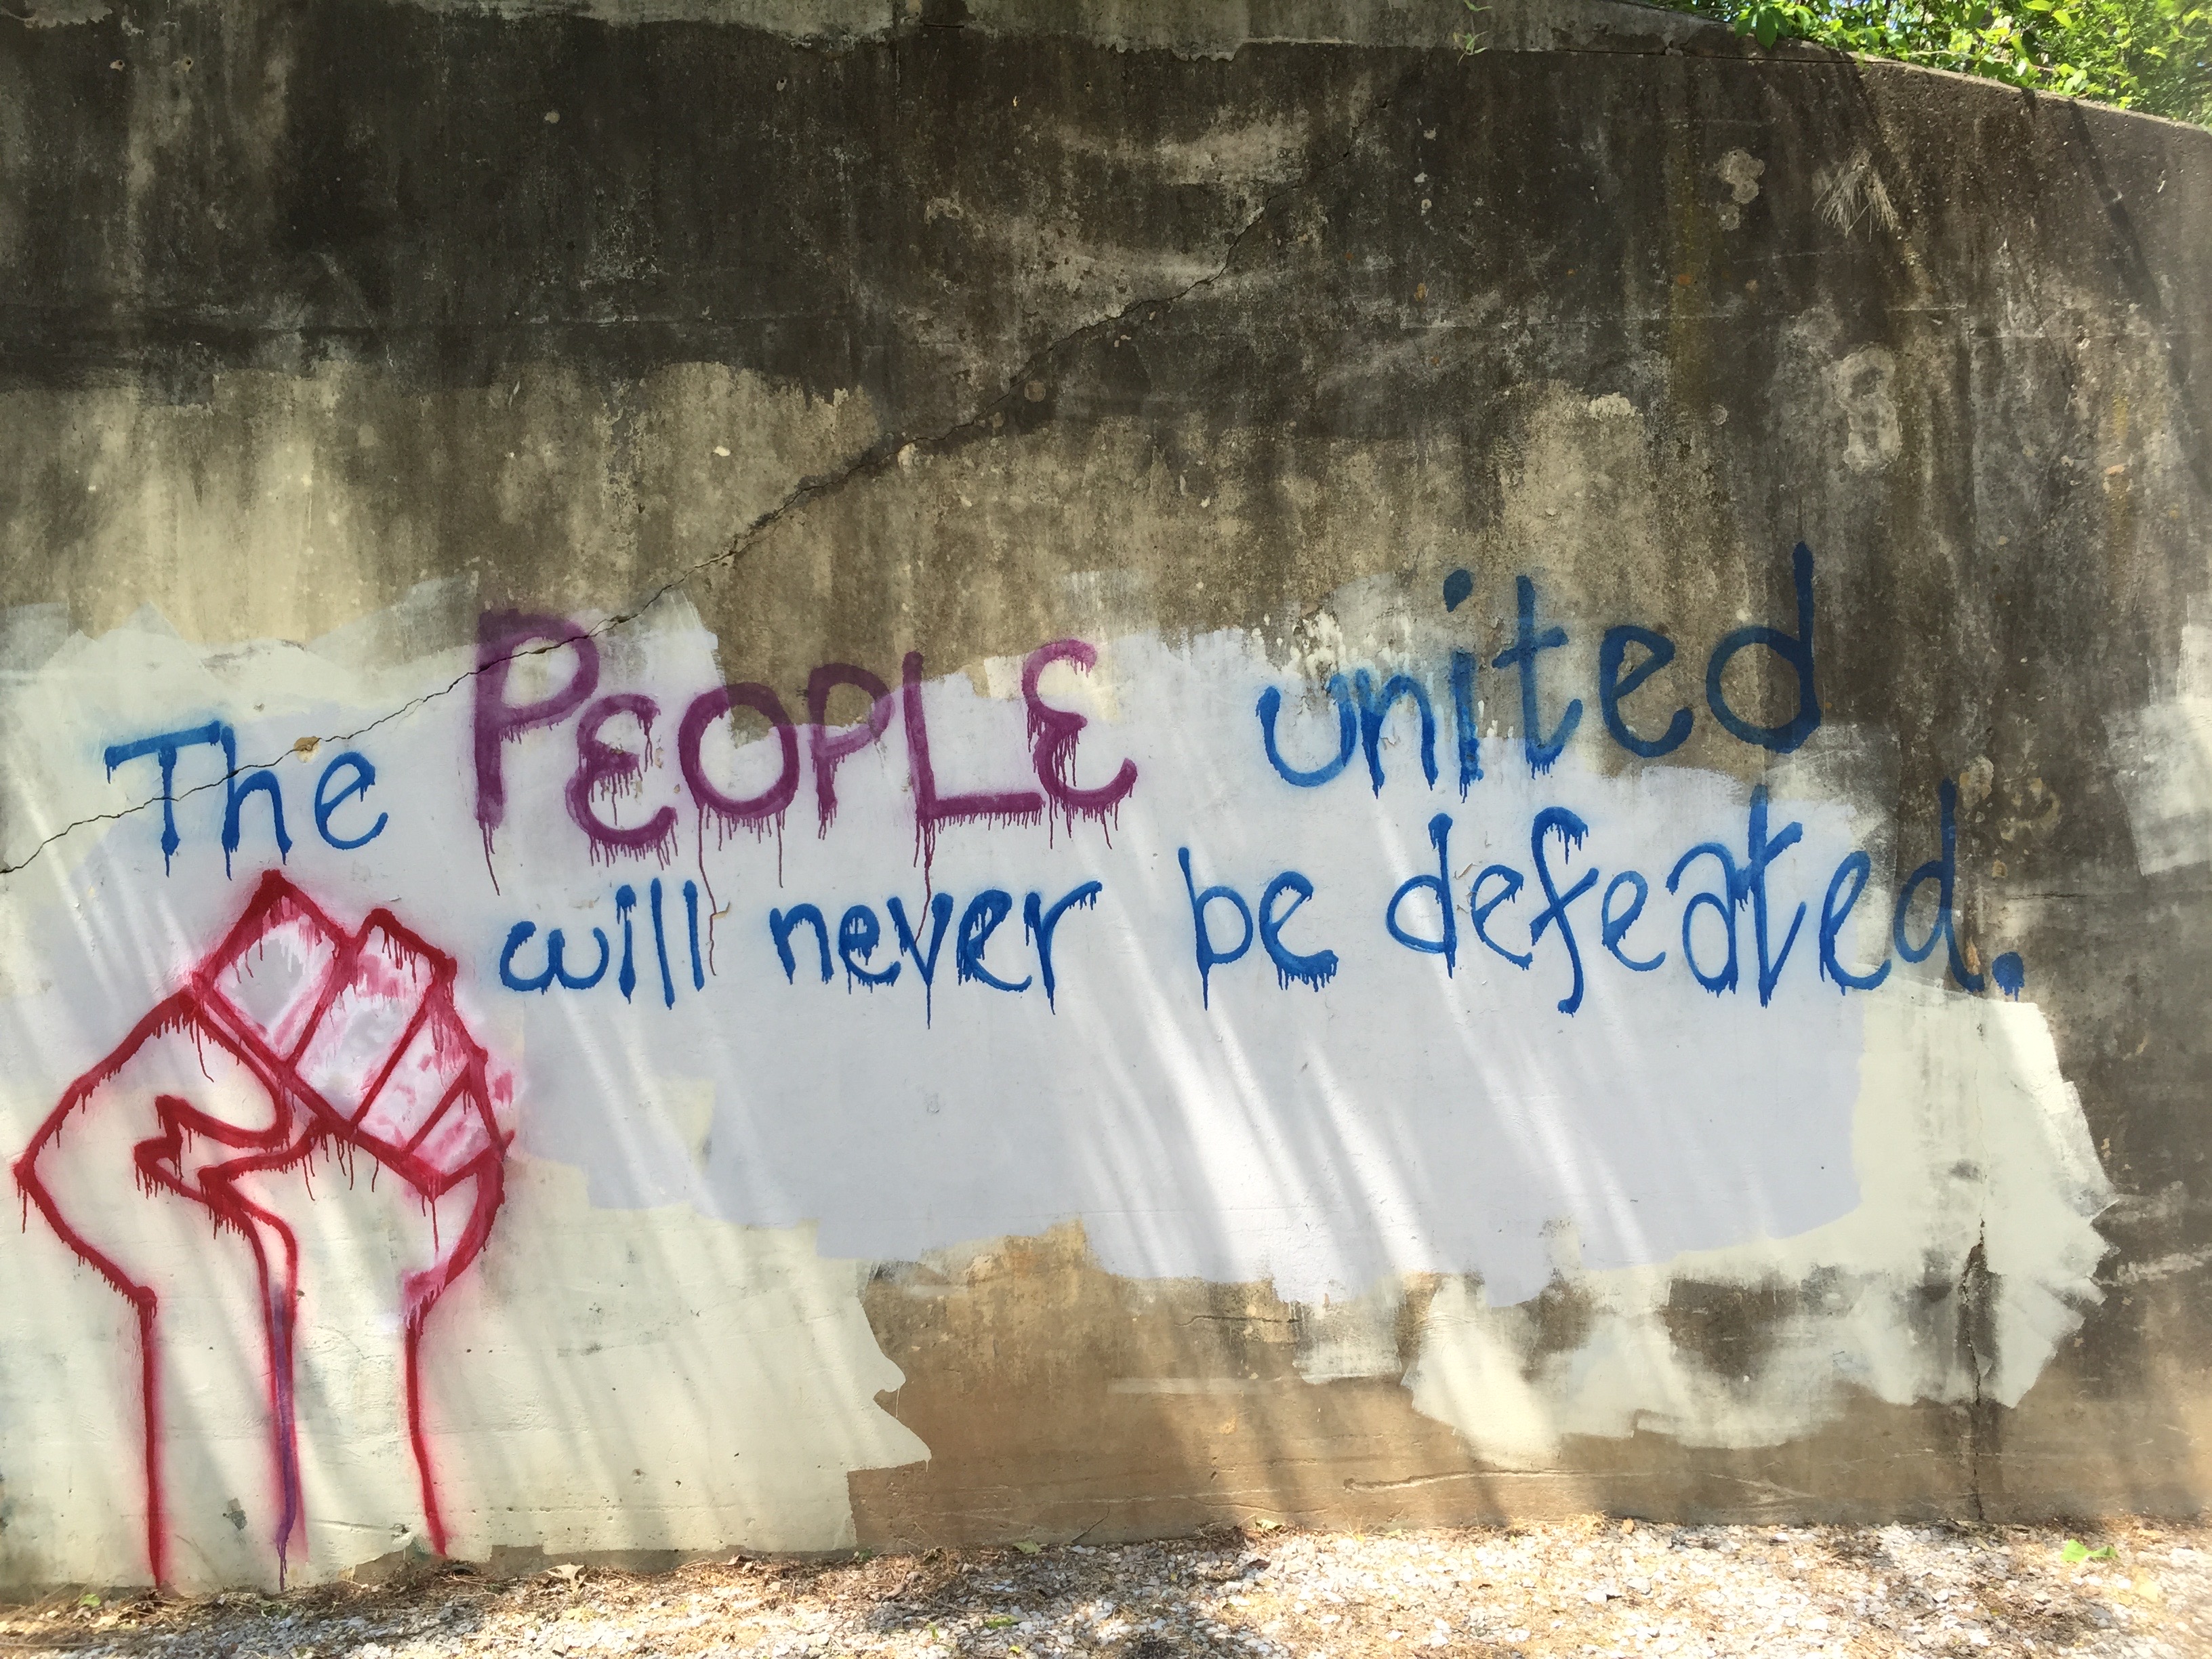 The PEOPLE united
will never be defeated.